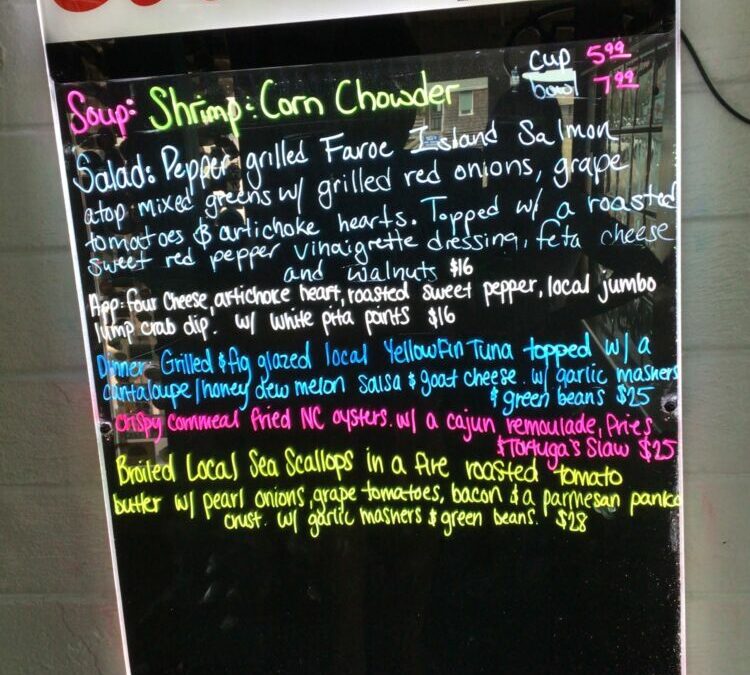 cup 5.99
Soup: Shrimp & Corn Chowder bowl 7.99
Salad: Pepper grilled Faroe Island Salmon
atop mixed greens w/ grilled red onions, grape
tomatoes & artichoke hearts. Topped w/ a roasted
sweet red pepper vinaigrette dressing, feta cheese
and walnuts $16
App: four cheese, artichoke heart, roasted sweet pepper, local jumbo
lump crab dip. w/ white pita points $16
Dinner: Grilled & fig glazed local Yellowfin Tuna topped w/ a
cantaloupe/honey dew melon salsa & goat cheese. w/ garlic mashers
& green beans $25
Crispy cornmeal fried NC oysters. w/ a cajun remoulade, fries
& Tortuga's Slaw $25
Broiled Local Sea Scallops in a fire roasted tomato
butter w/ pearl onions, grape tomatoes, bacon & a parmesan panko
crust. w/ garlic mashers & green beans. $28